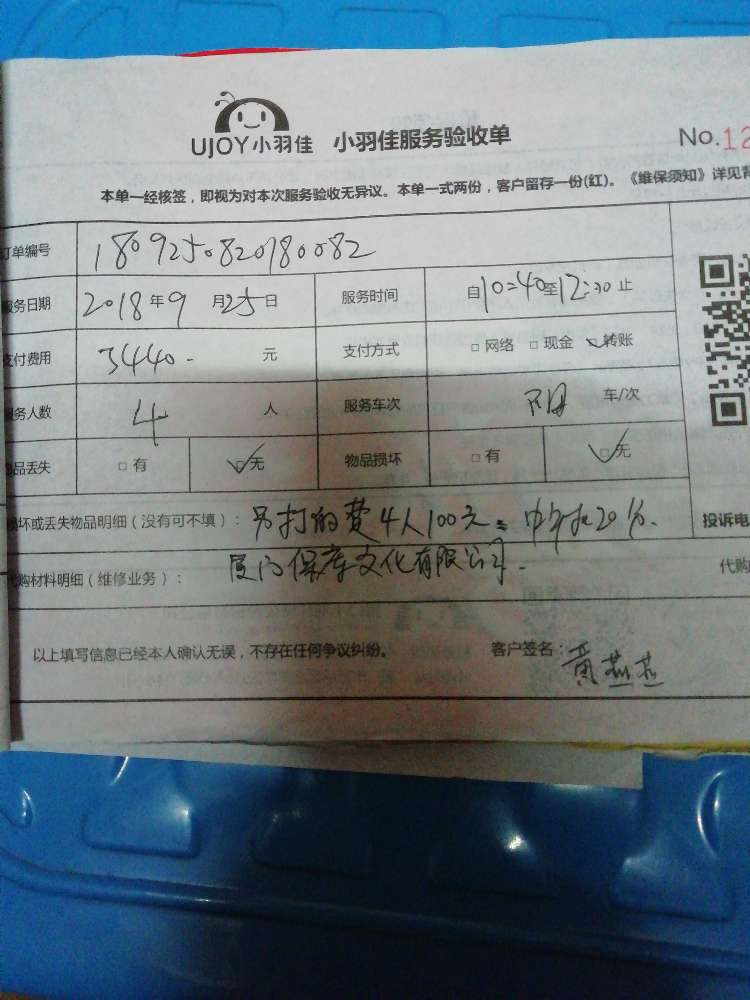 UJOY小羽佳 小羽佳服务验收单 No.12
本单一经核签，即视为对本次服务验收无异议。本单一式两份，客户留存一份(红)。《维保须知》详见背
订单编号 1809250820780082
服务日期 2018年9月25日 服务时间 自10:40至12:30止
支付费用 3440-元 支付方式 □网络 □现金 ✓转账
服务人数 4人 服务车次 车/次
物品丢失 □有 ☑无 物品损坏 □有 ☑无
损坏或丢失物品明细（没有可不填）： 另打的费4人100元 投诉电
代购材料明细（维修业务）： 厦门保 文化有限公司. 代购
以上填写信息已经本人确认无误，不存在任何争议纠纷。 客户签名：黄燕燕